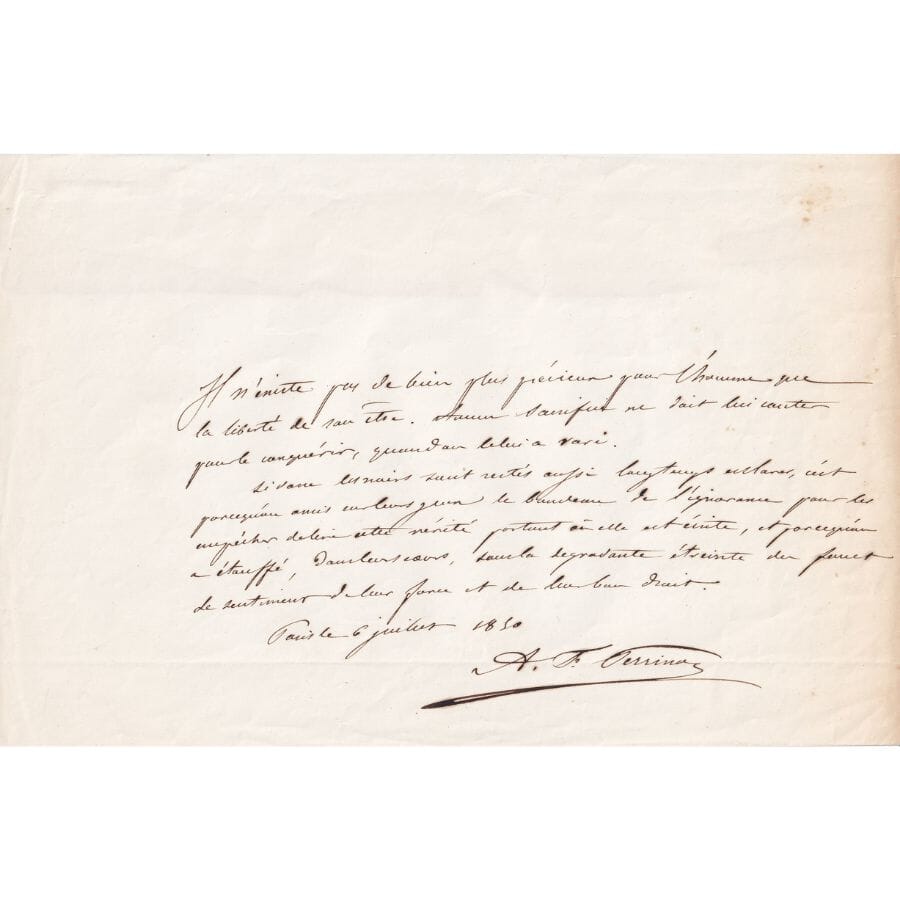 Il n'existe pas de bien plus précieux pour l'homme que
la liberté de son être. Aucun sacrifice ne doit lui couter
pour le conquérir, quand on le lui a ravi.
Si donc les noirs sont restés aussi longtemps esclaves, c'est
parcequ'on a mis sur leurs yeux le bandeau de l'ignorance pour les
empêcher de lire cette vérité partout où elle est écrite, et parcequ'on
a étouffé, dans leurs cœurs, sous la dégradante étreinte du fouet
le sentiment de leur force et de leur bon droit.
Paris le 6 juillet 1850
A. F. Perrinon